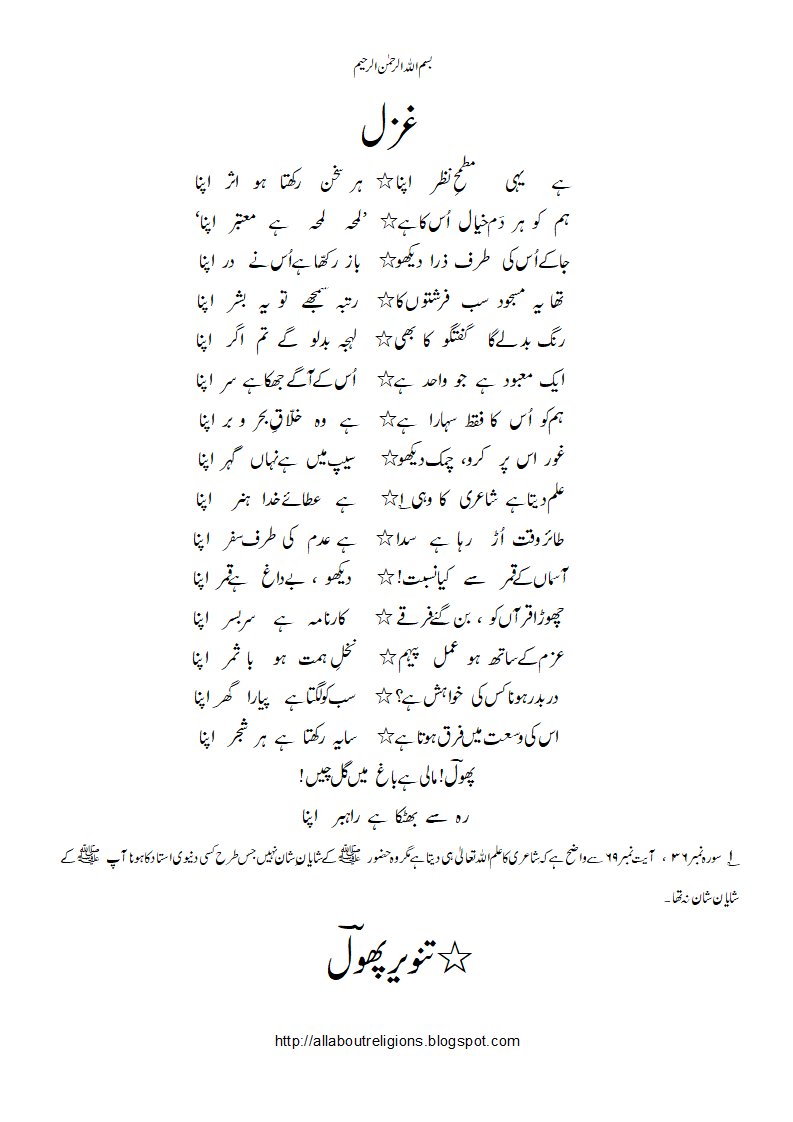 بسم اللہ الرحمٰن الرحیم
غزل
ہے یہی مطمحِ نظر اپنا ☆ ہر سخن رکھتا ہو اثر اپنا
ہم کو ہر دَم خیال اُس کا ہے ☆ ’لمحہ لمحہ ہے معتبر اپنا‘
جا کے اُس کی طرف ذرا دیکھو ☆ باز رکھّا ہے اُس نے در اپنا
تھا یہ مسجود سب فرشتوں کا ☆ رتبہ سمجھے تو یہ بشر اپنا
رنگ بدلے گا گفتگو کا بھی ☆ لہجہ بدلو گے تم اگر اپنا
ایک معبود ہے جو واحد ہے ☆ اُس کے آگے جھکا ہے سر اپنا
ہم کو اُس کا فقط سہارا ہے ☆ ہے وہ خلّاقِ بحر و بر اپنا
غور اس پر کرو، چمک دیکھو ☆ سیپ میں ہے نہاں گہر اپنا
علم دیتا ہے شاعری کا وہی ۱؂ ☆ ہے عطائے خدا ہنر اپنا
طائر وقت اُڑ رہا ہے سدا ☆ ہے عدم کی طرف سفر اپنا
آسماں کے قمر سے کیا نسبت! ☆ دیکھو ، بے داغ ہے قمر اپنا
چھوڑا قرآں کو ، بن گئے فرقے ☆ کارنامہ ہے سربسر اپنا
عزم کے ساتھ ہو عمل پیہم ☆ نخلِ ہمت ہو با ثمر اپنا
در بدر ہونا کس کی خواہش ہے؟ ☆ سب کو لگتا ہے پیارا گھر اپنا
اس کی وسعت میں فرق ہوتا ہے ☆ سایہ رکھتا ہے ہر شجر اپنا
پھولؔ! مالی ہے باغ میں گل چیں!
رہ سے بھٹکا ہے راہبر اپنا
۱؂ سورہ نمبر ۳۶ ، آیت نمبر ۶۹ سے واضح ہے کہ شاعری کا علم اللہ تعالیٰ ہی دیتا ہے مگر وہ حضور ﷺ کے شایانِ شان نہیں جس طرح کسی دنیوی استاد کا ہونا آپ ﷺ کے
شایان شان نہ تھا ۔
☆ تنویر پھولؔ
http://allaboutreligions.blogspot.com